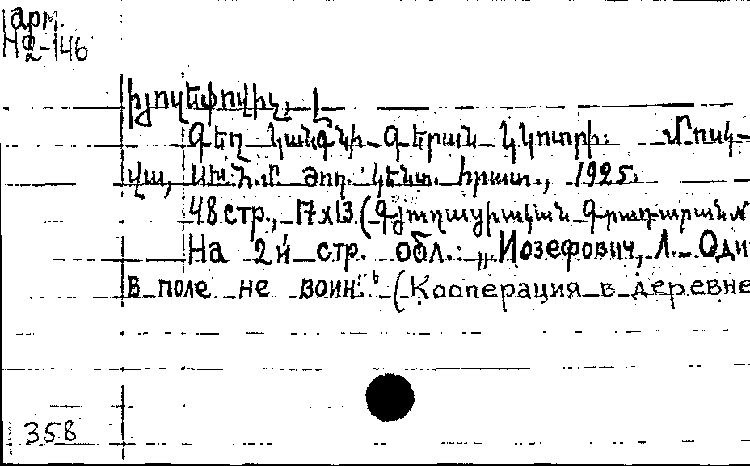 арм.
H2-146
Իյոզեֆովիչ, Լ.
Գեղ կանգնի գերան կկոտրի. Մոսկ-
վա, ԽՍՀՄ ժող. կենտ. հրատ., 1925.
48 стр., 17x13. (Գյուղացիական գրադարան №
На 2й стр. обл.: „Иозефович, Л. Оди
в поле не воин." (Кооперация в деревне
358